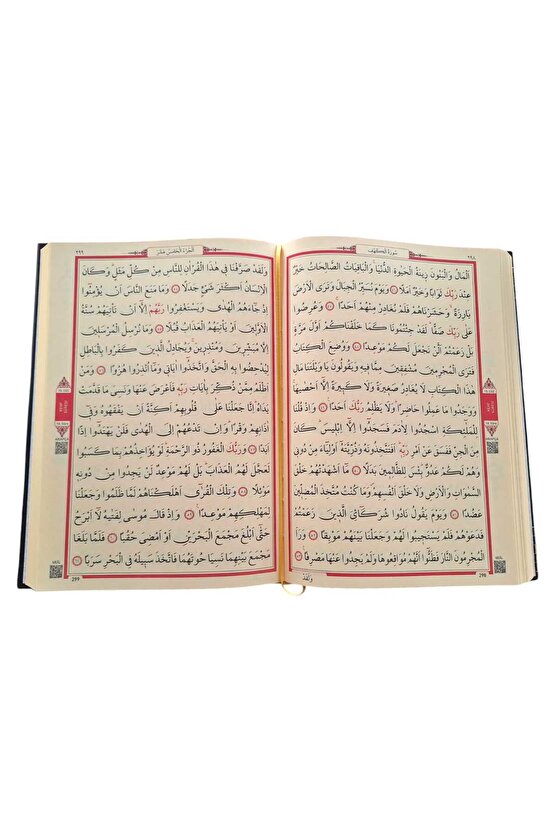 ٢٩٨
سُورَةُ الْكَهْفِ
اَلْمَالُ وَالْبَنُونَ زِينَةُ الْحَيٰوةِ الدُّنْيَا وَالْبَاقِيَاتُ الصَّالِحَاتُ خَيْرٌ
عِنْدَ رَبِّكَ ثَوَابًا وَخَيْرٌ اَمَلًا ﴿٤٦﴾ وَيَوْمَ نُسَيِّرُ الْجِبَالَ وَتَرَى الْاَرْضَ
بَارِزَةً وَحَشَرْنَاهُمْ فَلَمْ نُغَادِرْ مِنْهُمْ اَحَدًا ﴿٤٧﴾ وَعُرِضُوا
عَلٰى رَبِّكَ صَفًّا لَقَدْ جِئْتُمُونَا كَمَا خَلَقْنَاكُمْ اَوَّلَ مَرَّةٍ
بَلْ زَعَمْتُمْ اَلَّنْ نَجْعَلَ لَكُمْ مَوْعِدًا ﴿٤٨﴾ وَوُضِعَ الْكِتَابُ
فَتَرَى الْمُجْرِمِينَ مُشْفِقِينَ مِمَّا فِيهِ وَيَقُولُونَ يَا وَيْلَتَنَا مَالِ
هٰذَا الْكِتَابِ لَا يُغَادِرُ صَغِيرَةً وَلَا كَبِيرَةً اِلَّا اَحْصٰيهَا
وَوَجَدُوا مَا عَمِلُوا حَاضِرًا وَلَا يَظْلِمُ رَبُّكَ اَحَدًا ﴿٤٩﴾ وَاِذْ قُلْنَا
لِلْمَلٰئِكَةِ اسْجُدُوا لِاٰدَمَ فَسَجَدُوا اِلَّا اِبْلِيسَ كَانَ
مِنَ الْجِنِّ فَفَسَقَ عَنْ اَمْرِ رَبِّهِ اَفَتَتَّخِذُونَهُ وَذُرِّيَّتَهُ اَوْلِيَاءَ مِنْ دُونِي
وَهُمْ لَكُمْ عَدُوٌّ بِئْسَ لِلظَّالِمِينَ بَدَلًا ﴿٥٠﴾ مَا اَشْهَدْتُهُمْ خَلْقَ
السَّمٰوَاتِ وَالْاَرْضِ وَلَا خَلْقَ اَنْفُسِهِمْ وَمَا كُنْتُ مُتَّخِذَ الْمُضِلِّينَ
عَضُدًا ﴿٥١﴾ وَيَوْمَ يَقُولُ نَادُوا شُرَكَائِيَ الَّذِينَ زَعَمْتُمْ
فَدَعَوْهُمْ فَلَمْ يَسْتَجِيبُوا لَهُمْ وَجَعَلْنَا بَيْنَهُمْ مَوْبِقًا ﴿٥٢﴾ وَرَاَ
الْمُجْرِمُونَ النَّارَ فَظَنُّوا اَنَّهُمْ مُوَاقِعُوهَا وَلَمْ يَجِدُوا عَنْهَا مَصْرِفًا ﴿٥٣﴾
وَلَقَدْ
298
٢٩٩
اَلْجُزْءُ الْخَامِسَ عَشَرَ
وَلَقَدْ صَرَّفْنَا فِي هٰذَا الْقُرْاٰنِ لِلنَّاسِ مِنْ كُلِّ مَثَلٍ وَكَانَ
الْاِنْسَانُ اَكْثَرَ شَيْءٍ جَدَلًا ﴿٥٤﴾ وَمَا مَنَعَ النَّاسَ اَنْ يُؤْمِنُوا
اِذْ جَاءَهُمُ الْهُدٰى وَيَسْتَغْفِرُوا رَبَّهُمْ اِلَّا اَنْ تَأْتِيَهُمْ سُنَّةُ
الْاَوَّلِينَ اَوْ يَأْتِيَهُمُ الْعَذَابُ قُبُلًا ﴿٥٥﴾ وَمَا نُرْسِلُ الْمُرْسَلِينَ
اِلَّا مُبَشِّرِينَ وَمُنْذِرِينَ وَيُجَادِلُ الَّذِينَ كَفَرُوا بِالْبَاطِلِ
لِيُدْحِضُوا بِهِ الْحَقَّ وَاتَّخَذُوا اٰيَاتِي وَمَا اُنْذِرُوا هُزُوًا ﴿٥٦﴾ وَمَنْ
اَظْلَمُ مِمَّنْ ذُكِّرَ بِاٰيَاتِ رَبِّهِ فَاَعْرَضَ عَنْهَا وَنَسِيَ مَا قَدَّمَتْ
يَدَاهُ اِنَّا جَعَلْنَا عَلٰى قُلُوبِهِمْ اَكِنَّةً اَنْ يَفْقَهُوهُ وَفِي
اٰذَانِهِمْ وَقْرًا وَاِنْ تَدْعُهُمْ اِلَى الْهُدٰى فَلَنْ يَهْتَدُوا اِذًا
اَبَدًا ﴿٥٧﴾ وَرَبُّكَ الْغَفُورُ ذُو الرَّحْمَةِ لَوْ يُؤَاخِذُهُمْ بِمَا كَسَبُوا
لَعَجَّلَ لَهُمُ الْعَذَابَ بَلْ لَهُمْ مَوْعِدٌ لَنْ يَجِدُوا مِنْ دُونِهِ
مَوْئِلًا ﴿٥٨﴾ وَتِلْكَ الْقُرٰى اَهْلَكْنَاهُمْ لَمَّا ظَلَمُوا وَجَعَلْنَا
لِمَهْلِكِهِمْ مَوْعِدًا ﴿٥٩﴾ وَاِذْ قَالَ مُوسٰى لِفَتٰيهُ لَا اَبْرَحُ
حَتّٰى اَبْلُغَ مَجْمَعَ الْبَحْرَيْنِ اَوْ اَمْضِيَ حُقُبًا ﴿٦٠﴾ فَلَمَّا بَلَغَا
مَجْمَعَ بَيْنِهِمَا نَسِيَا حُوتَهُمَا فَاتَّخَذَ سَبِيلَهُ فِي الْبَحْرِ سَرَبًا ﴿٦١﴾
299